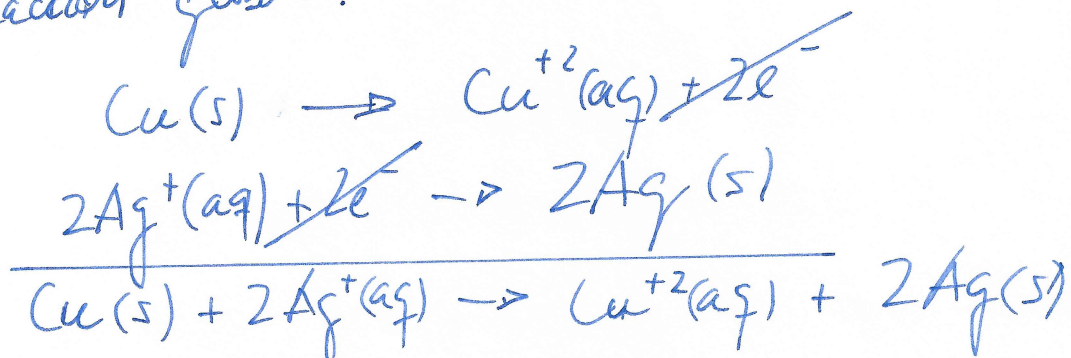 Cu(s) → Cu⁺²(aq) + 2e⁻
2Ag⁺(aq) + 2e⁻ → 2Ag(s)
Cu(s) + 2Ag⁺(aq) → Cu⁺²(aq) + 2Ag(s)